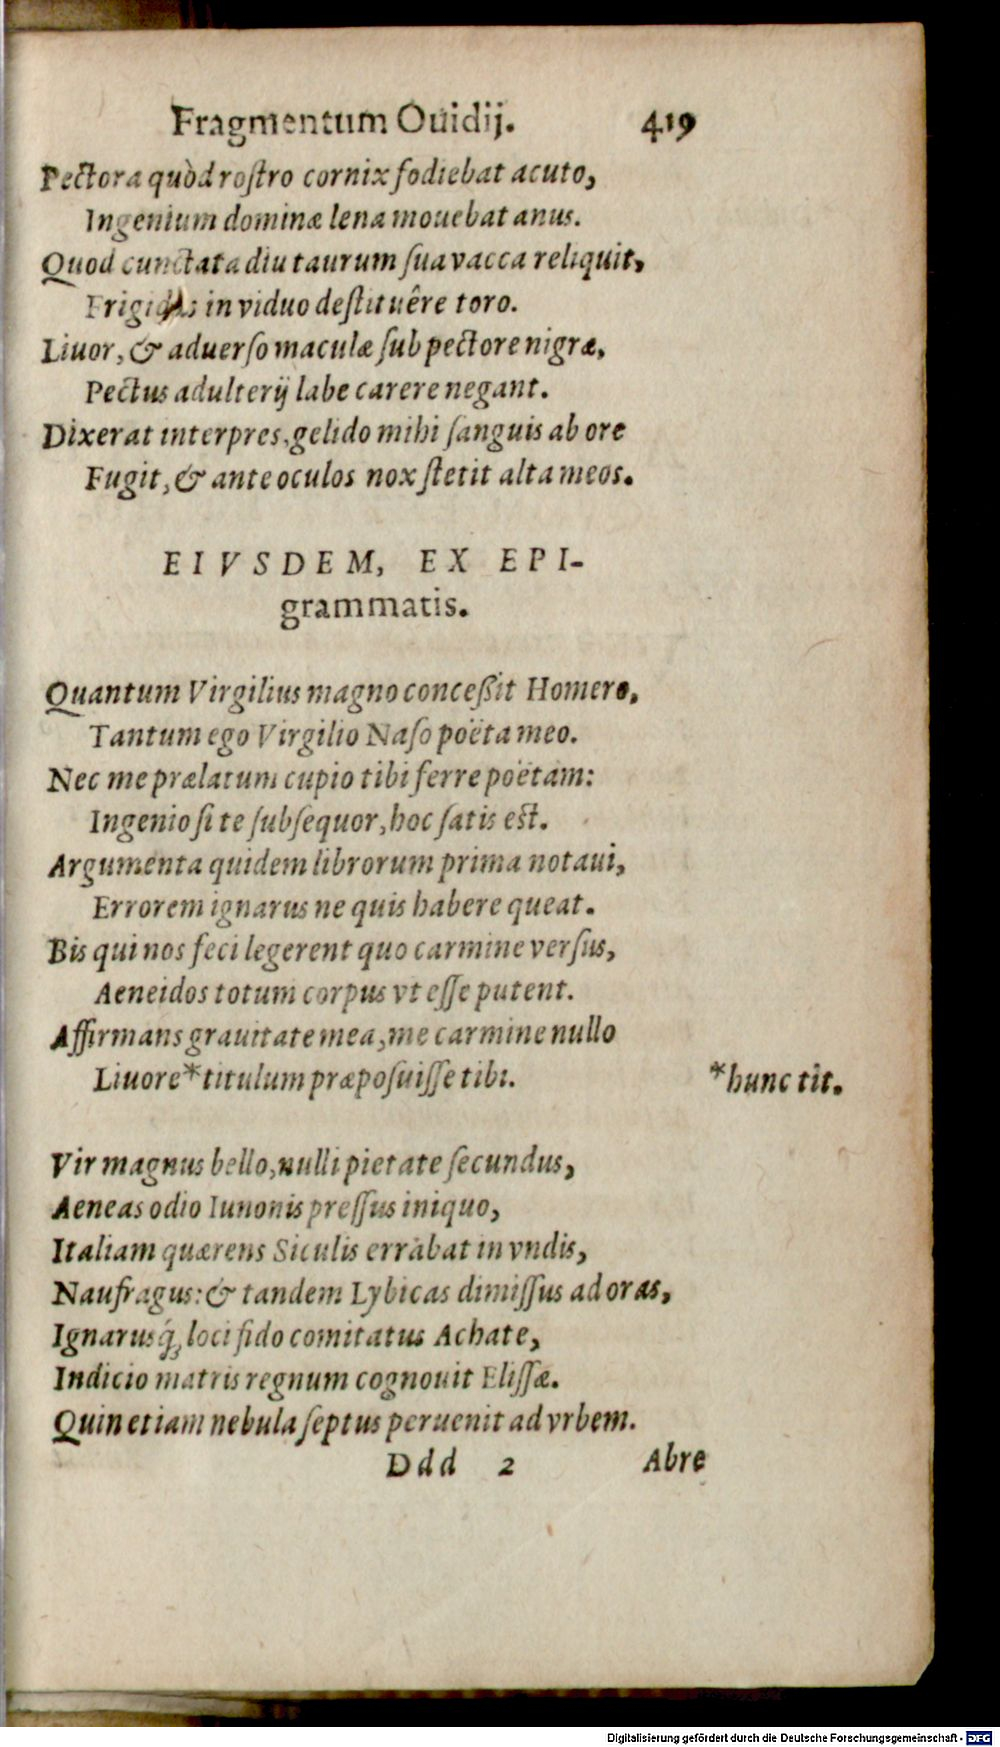 Fragmentum Ouidij. 419
Pectora quòd roſtro cornix fodiebat acuto,
Ingenium dominæ lena mouebat anus.
Quod cunctata diu taurum ſua vacca reliquit,
Frigidus in viduo deſtituêre toro.
Liuor, & aduerſo maculæ ſub pectore nigræ,
Pectus adulterij labe carere negant.
Dixerat interpres, gelido mihi ſanguis ab ore
Fugit, & ante oculos nox ſtetit alta meos.
EIVSDEM, EX EPI-
grammatis.
Quantum Virgilius magno conceßit Homero,
Tantum ego Virgilio Naſo poëta meo.
Nec me prælatum cupio tibi ferre poëtam:
Ingenio ſi te ſubſequor, hoc ſatis eſt.
Argumenta quidem librorum prima notaui,
Errorem ignarus ne quis habere queat.
Bis quinos feci legerent quo carmine verſus,
Aeneidos totum corpus vt eſſe putent.
Affirmans grauitate mea, me carmine nullo
Liuore * titulum præpoſuiſſe tibi. * hunc tit.
Vir magnus bello, nulli pietate ſecundus,
Aeneas odio Iunonis preſſus iniquo,
Italiam quærens Siculis errabat in vndis,
Naufragus: & tandem Lybicas dimiſſus ad oras,
Ignarusq́ꝫ loci fido comitatus Achate,
Indicio matris regnum cognouit Eliſſæ.
Quin etiam nebula ſeptus peruenit ad vrbem.
Ddd 2 Abre
Digitalisierung gefördert durch die Deutsche Forschungsgemeinschaft - DFG